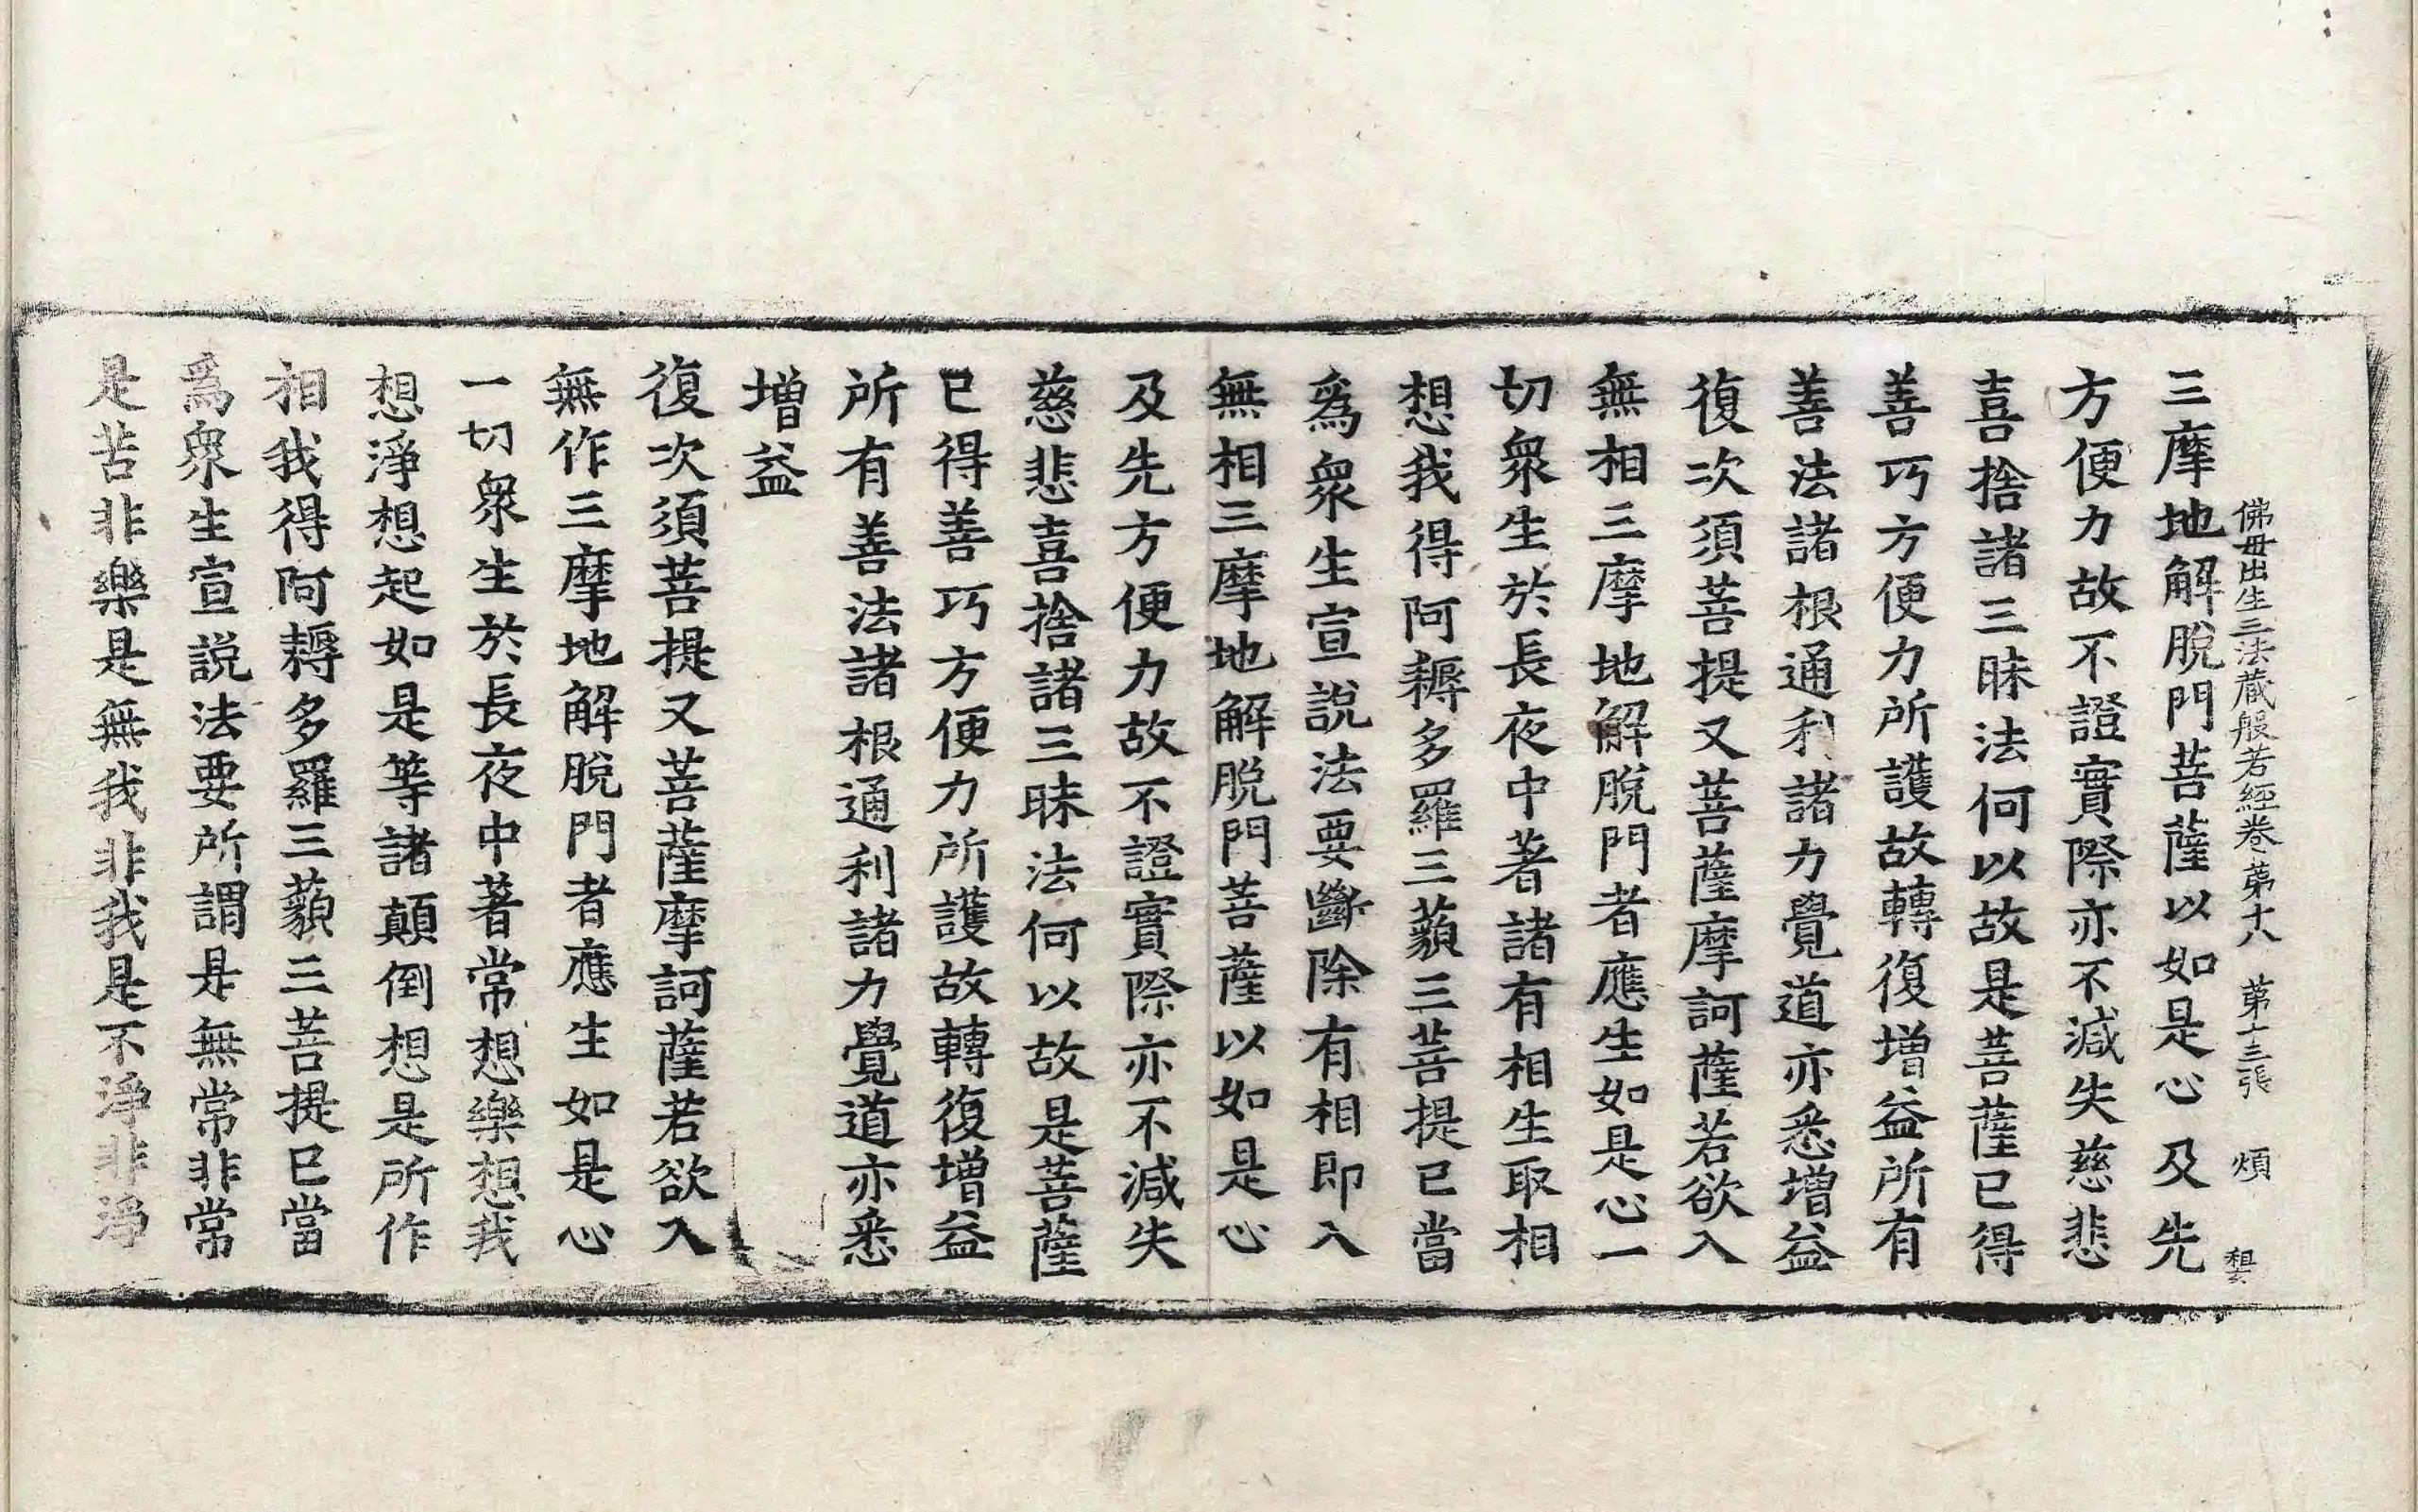 佛母出生三法蔵般若經卷第十八 第十三張 煩
三摩地解脫門菩薩以如是心及先
方便力故不證實際亦不減失慈悲
喜捨諸三昧法何以故是菩薩已得
善巧方便力所護故轉復增益所有
善法諸根通利諸力覺道亦悉增益
復次須菩提又菩薩摩訶薩若欲入
無相三摩地解脫門者應生如是心一
切衆生於長夜中著諸有相生取相
想我得阿耨多羅三藐三菩提已當
爲衆生宣說法要斷除有相即入
無相三摩地解脫門菩薩以如是心
及先方便力故不證實際亦不減失
慈悲喜捨諸三昧法何以故是菩薩
已得善巧方便力所護故轉復增益
所有善法諸根通利諸力覺道亦悉
增益
復次須菩提又菩薩摩訶薩若欲入
無作三摩地解脫門者應生如是心
一切衆生於長夜中著常想樂想我
想淨想起如是等諸顛倒想是所作
相我得阿耨多羅三藐三菩提已當
爲衆生宣說法要所謂是無常非常
是苦非樂是無我非我是不淨非淨